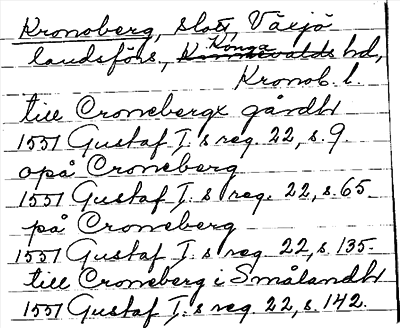 Kronoberg, slott, Växjö
landsförs., Kinnevalds Konga hd,
Kronob. l.
till Cronebergx gårdh
1551 Gustaf I. s reg. 22, s. 9.
opå Croneberg
1551 Gustaf I. s reg. 22, s. 65.
på Croneberg
1551 Gustaf I. s reg. 22, s. 135.
till Croneberg i Smålandh
1551 Gustaf I. s reg. 22, s. 142.